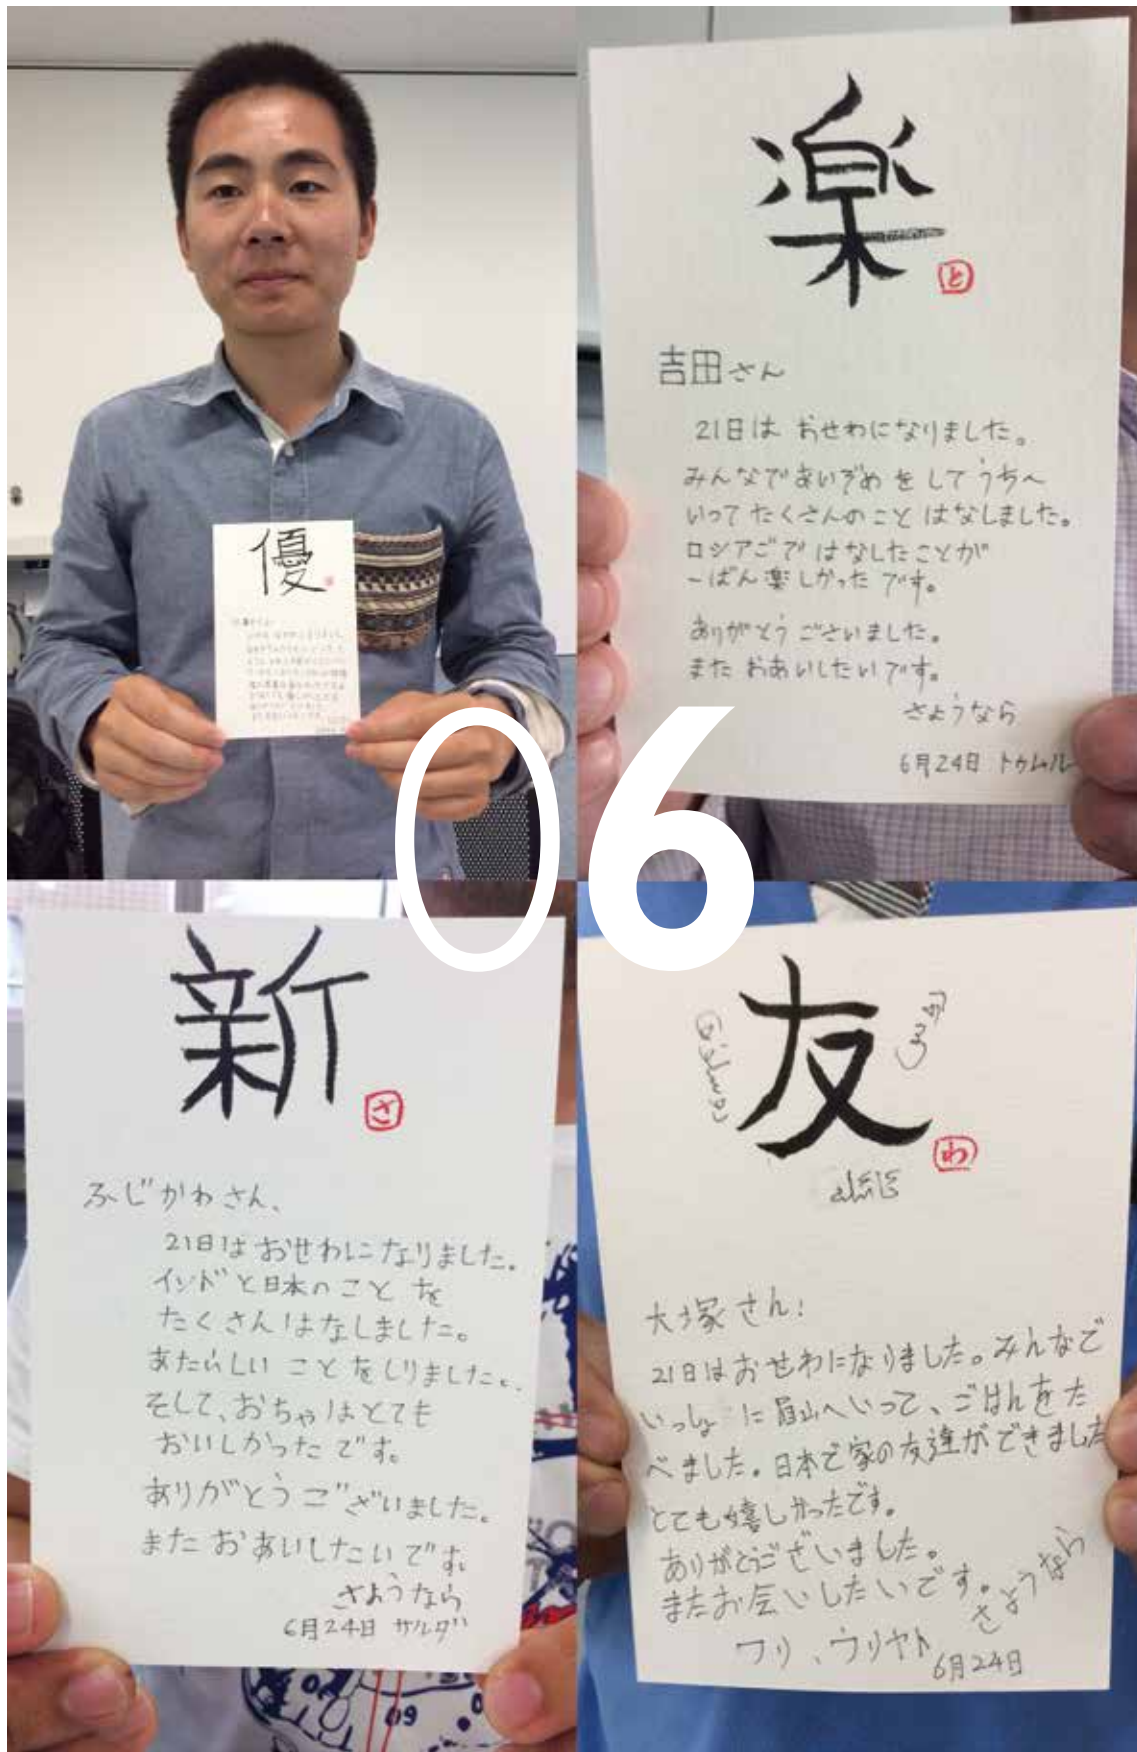 優
楽
と
吉田さん
21日は おせわになりました。
みんなであいぞめ を して うちへ
いって たくさんのこと はなしました。
ロシアごで はなしたことが
一ばん 楽しかった です。
ありがとう ございました。
また おあいしたいです。
さようなら
6月24日 トゥムル
06
新
さ
ふじかわさん、
21日は おせわに なりました。
インドと日本のこと を
たくさん はなしました。
あたらしい ことを しりました。
そして、おちゃはとても
おいしかった です。
ありがとう ございました。
また おあいしたい です。
さようなら
6月24日 サルダ
友
わ
大塚さん!
21日はおせわになりました。みんなで
いっしょ に 眉山へいって、ごはんをた
べました。日本で家の友達ができました
とても嬉しかったです。
ありがとうございました。
またお会いしたいです。さようなら
ワリ、ウリヤト
6月24日
09